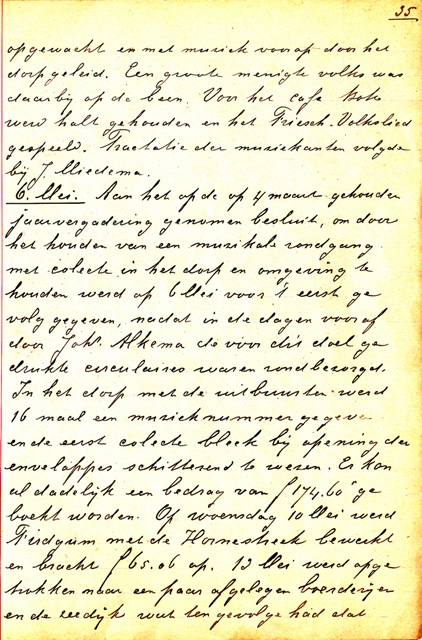 35
opgewacht en met muziek voorop door het
dorp geleid. Een groote menigte volks was
daarbij op de been. Voor het cafe
werd halt gehouden en het Friesch Volkslied
gespeeld. Tractatie der muziekanten volgde
bij J. Miedema.
6 Mei. Aan het op de op 4 maart gehouden
jaarvergadering genomen besluit, om door
het houden van een muzikale rondgang
met colecte in het dorp en omgeving te
houden werd op 6 Mei voor 't eerst ge
volg gegeven, nadat in de dagen vooraf
door Johs. Alkema de voor dit doel ge
drukte circulaires waren rondbezorgd.
In het dorp met de uitbuurten werd
16 maal een muzieknummer gegeven
en de eerst colecte bleek bij opening der
enveloppes schitterend te wezen. Er kon
al dadelijk een bedrag van ƒ 174.60 ge
boekt worden. Op woensdag 10 Mei werd
Firdgum met de Hornestreek bewerkt
en bracht ƒ 65.06 op. 13 Mei werd opge
trokken naar een paar afgelegen boerderijen
en de zeedijk wat ten gevolge had dat